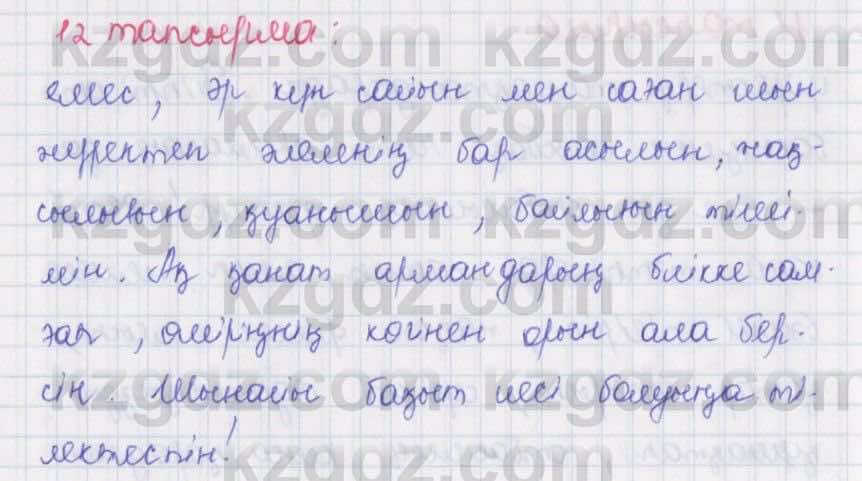 12 тапсырма:
емес, әр күн сайын мен саған шын
жүректен әлемнің бар асылын, жақ-
сылығын, қуанышын, байлығын тілей-
мін. Ақ қанат армандарың биікке сам-
ғап, өміріңнің көгінен орын ала бер-
сін. Шынайы бақыт иесі болуыңа ті-
лектеспін!
kzgdz.com